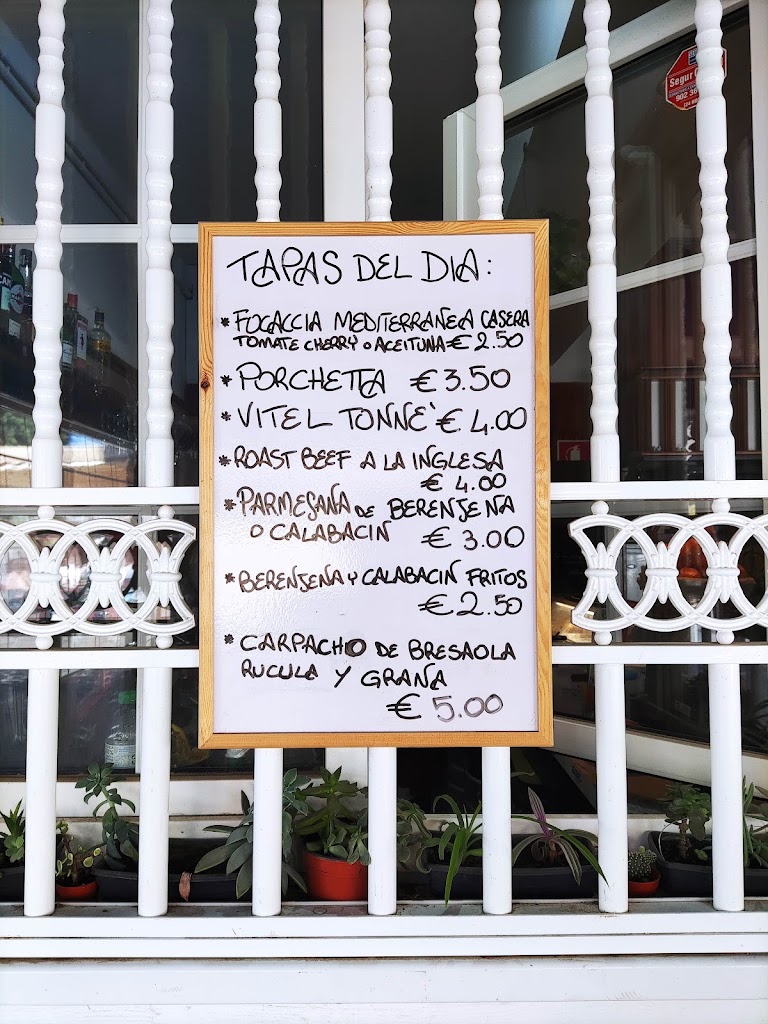 TAPAS DEL DIA:
* FOCACCIA MEDITERRANEA CASERA
TOMATE CHERRY O ACEITUNA € 2.50
* PORCHETTA € 3.50
* VITEL TONNE' € 4.00
* ROAST BEEF A LA INGLESA
€ 4.00
* PARMESANA DE BERENJENA
O CALABACIN € 3.00
* BERENJENA Y CALABACIN FRITOS
€ 2.50
* CARPACHO DE BRESAOLA
RUCULA Y GRAÑA
€ 5.00
Segur
902 36